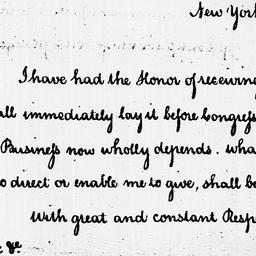 New York
I have had the Honor of receiving
all immediately lay it before Congreſs
Buſineſs now wholly depends. wha
o direct or enable me to give, shall be
with great and constant Resp
&c.